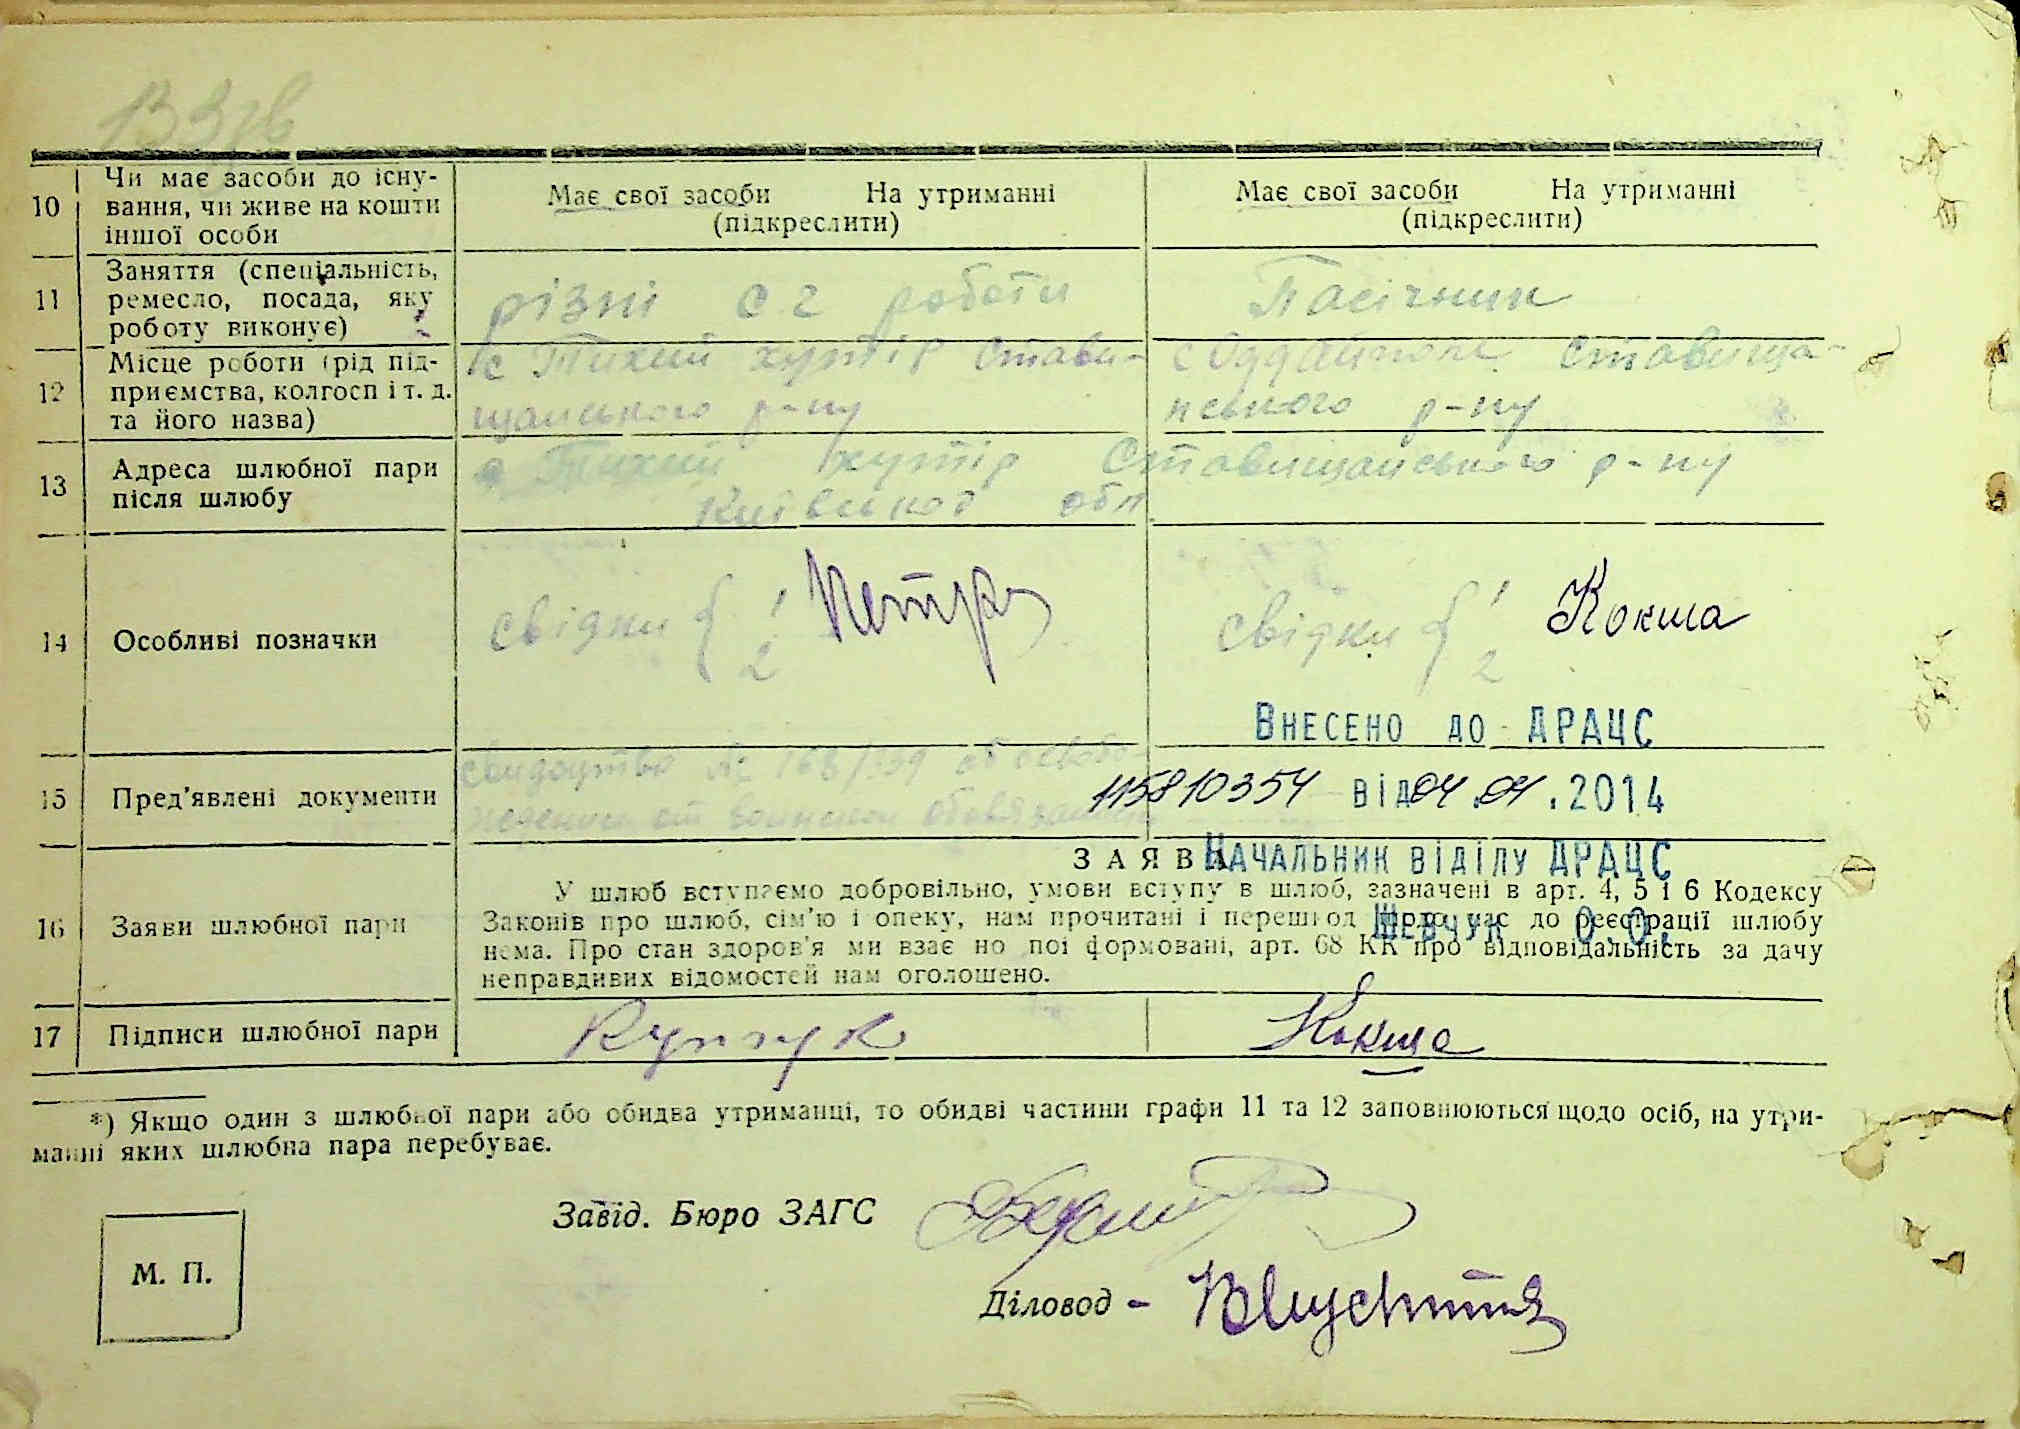 133зв
10 Чи має засоби до існу-
вання, чи живе на кошти
іншої особи
Має свої засоби На утриманні
(підкреслити)
Має свої засоби На утриманні
(підкреслити)
11 Заняття (спеціальність,
ремесло, посада, яку
роботу виконує)
різні с г роботи
Пасічник
12 Місце роботи (рід під-
приємства, колгосп і т. д.
та його назва)
с Тихий хутір Стави-
щанського р-ну
Ставища-
нського р-ну
13 Адреса шлюбної пари
після шлюбу
с Тихий хутір Ставищанського р-ну
Київської обл.
14 Особливі позначки
свідки { 1
2
свідки { 1 Кокша
2
Внесено до ДРАЦС
15 Пред'явлені документи
115810354 від 04.04.2014
Начальник відділу ДРАЦС
Шевчук О.О.
16 Заяви шлюбної пари
ЗАЯВА
У шлюб вступаємо добровільно, умови вступу в шлюб, зазначені в арт. 4, 5 і 6 Кодексу
Законів про шлюб, сім'ю і опеку, нам прочитані і перешкод до реєстрації шлюбу
нема. Про стан здоров'я ми взаємно поінформовані, арт. 68 КК про відповідальність за дачу
неправдивих відомостей нам оголошено.
17 Підписи шлюбної пари
Кокша
*) Якщо один з шлюбної пари або обидва утриманці, то обидві частини графи 11 та 12 заповнюються щодо осіб, на утри-
манні яких шлюбна пара перебуває.
Завід. Бюро ЗАГС
М. П.
Діловод -